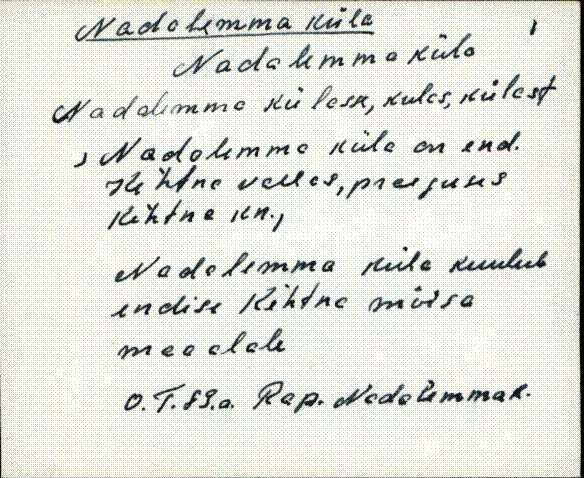 Nadalemma küla
1
Nadalemma küla
Nadalemma külasse, külas, külast
, Nadalemma küla on end.
Kehtna vallas, praeguses
Kehtna kn.,
Nadalemma küla kuulub
endise Kehtna mõisa
maadele
O. T. 89.a. Rap. Nadalemma k.